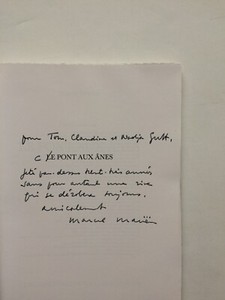 pour Tom, Claudine et Nadja Gutt,
CE PONT AUX ÂNES
jeté par-dessus trente-trois années
sans pour autant une rive
qui se dérobera toujours,
amicalement
Marcel Mariën